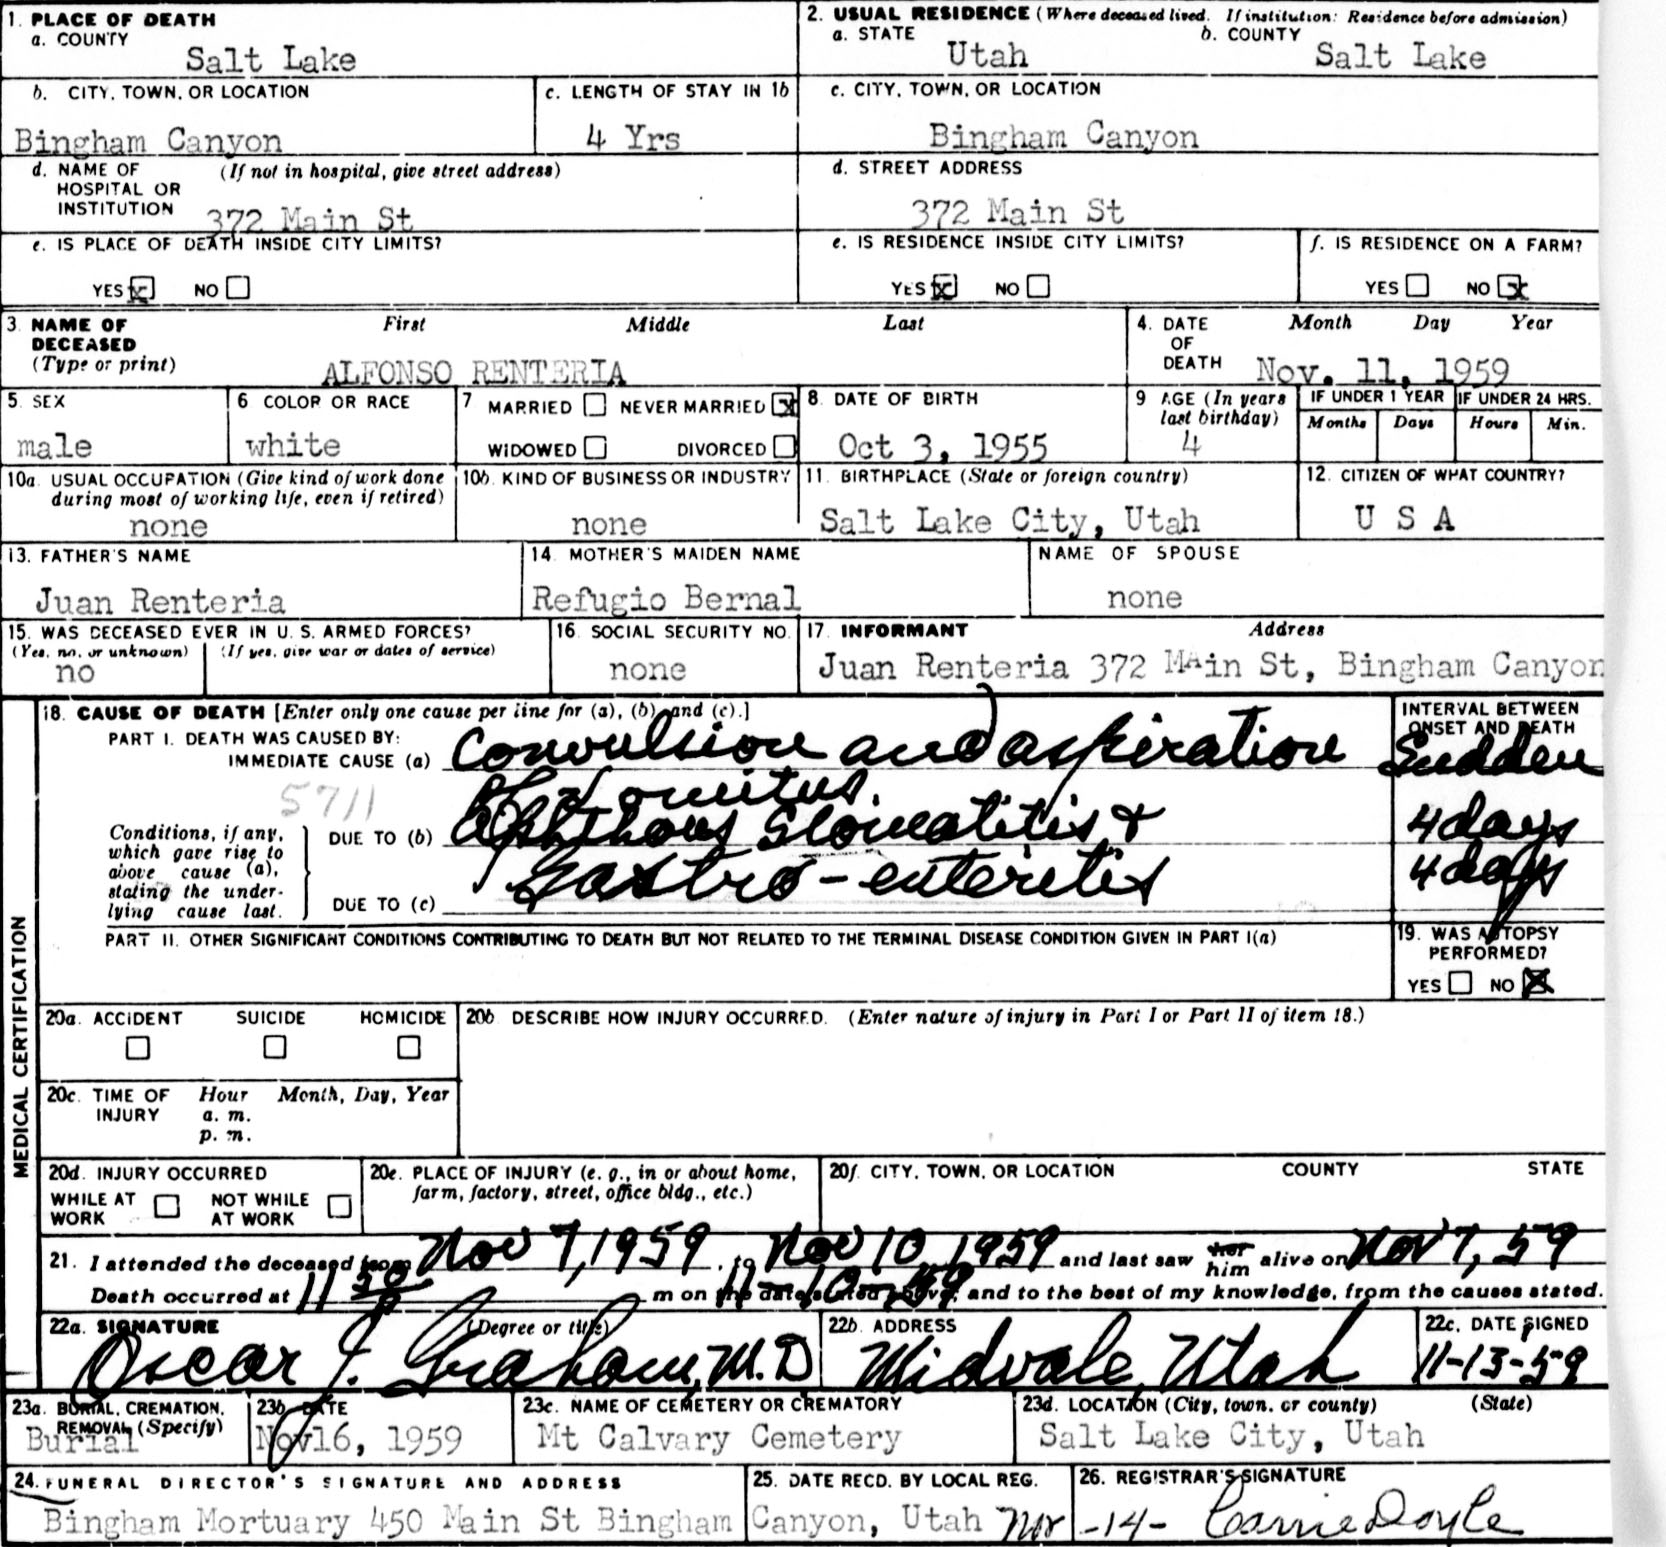 1. PLACE OF DEATH
a. COUNTY
Salt Lake
2. USUAL RESIDENCE (Where deceased lived. If institution: Residence before admission)
a. STATE
Utah
b. COUNTY
Salt Lake
b. CITY, TOWN, OR LOCATION
Bingham Canyon
c. LENGTH OF STAY IN 1b
4 Yrs
c. CITY, TOWN, OR LOCATION
Bingham Canyon
d. NAME OF HOSPITAL OR INSTITUTION
(If not in hospital, give street address)
372 Main St
d. STREET ADDRESS
372 Main St
e. IS PLACE OF DEATH INSIDE CITY LIMITS?
YES x NO
e. IS RESIDENCE INSIDE CITY LIMITS?
YES x NO
f. IS RESIDENCE ON A FARM?
YES NO x
3. NAME OF DECEASED (Type or print)
First Middle Last
ALFONSO RENTERIA
4. DATE OF DEATH
Month Day Year
Nov. 11, 1959
5. SEX
male
6 COLOR OR RACE
white
7 MARRIED NEVER MARRIED x
WIDOWED DIVORCED
8. DATE OF BIRTH
Oct 3, 1955
9 AGE (In years last birthday)
4
IF UNDER 1 YEAR
Months Days
IF UNDER 24 HRS.
Hours Min.
10a. USUAL OCCUPATION (Give kind of work done during most of working life, even if retired)
none
10b. KIND OF BUSINESS OR INDUSTRY
none
11. BIRTHPLACE (State or foreign country)
Salt Lake City, Utah
12. CITIZEN OF WHAT COUNTRY?
U S A
13. FATHER'S NAME
Juan Renteria
14. MOTHER'S MAIDEN NAME
Refugio Bernal
NAME OF SPOUSE
none
15. WAS DECEASED EVER IN U. S. ARMED FORCES?
(Yes, no, or unknown) (If yes, give war or dates of service)
no
16. SOCIAL SECURITY NO.
none
17. INFORMANT Address
Juan Renteria 372 MAin St, Bingham Canyon
MEDICAL CERTIFICATION
18. CAUSE OF DEATH [Enter only one cause per line for (a), (b), and (c).]
PART I. DEATH WAS CAUSED BY:
IMMEDIATE CAUSE (a) Convulsion and aspiration
of Vomitus.
5711
Conditions, if any, which gave rise to above cause (a), stating the underlying cause last.
DUE TO (b) Aphthous Stomatitis &
DUE TO (c) Gastro-enteritis
INTERVAL BETWEEN ONSET AND DEATH
Sudden
4 days
4 days
PART II. OTHER SIGNIFICANT CONDITIONS CONTRIBUTING TO DEATH BUT NOT RELATED TO THE TERMINAL DISEASE CONDITION GIVEN IN PART I(a)
19. WAS AUTOPSY PERFORMED?
YES NO X
20a. ACCIDENT SUICIDE HOMICIDE
20b DESCRIBE HOW INJURY OCCURRED. (Enter nature of injury in Part I or Part II of item 18.)
20c. TIME OF INJURY
Hour Month, Day, Year
a. m.
p. m.
20d. INJURY OCCURRED
WHILE AT WORK NOT WHILE AT WORK
20e. PLACE OF INJURY (e. g., in or about home, farm, factory, street, office bldg., etc.)
20f. CITY, TOWN, OR LOCATION COUNTY STATE
21. I attended the deceased from Nov 7, 1959, to Nov 10, 1959 and last saw her him alive on Nov 7, 59
Death occurred at 11 50 P m on the date stated above, 11-10-59 and to the best of my knowledge, from the causes stated.
22a. SIGNATURE (Degree or title)
Oscar J. Graham, M.D
22b. ADDRESS
Midvale, Utah
22c. DATE SIGNED
11-13-59
23a. BURIAL, CREMATION, REMOVAL (Specify)
Burial
23b DATE
Nov16, 1959
23c. NAME OF CEMETERY OR CREMATORY
Mt Calvary Cemetery
23d. LOCATION (City, town, or county) (State)
Salt Lake City, Utah
24. FUNERAL DIRECTOR'S SIGNATURE AND ADDRESS
Bingham Mortuary 450 Main St Bingham Canyon, Utah
25. DATE RECD. BY LOCAL REG.
-14-
26. REGISTRAR'S SIGNATURE
Carrie Doyle